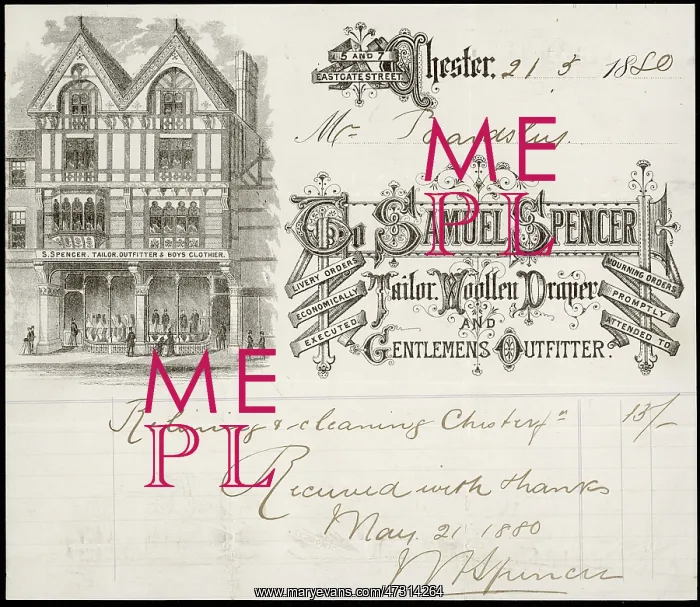 5 AND 7
EASTGATE STREET
Chester, 21 5 1880
Mr
To SAMUEL SPENCER
LIVERY ORDERS
ECONOMICALLY
EXECUTED
Tailor. Woollen Draper
AND
GENTLEMENS OUTFITTER.
MOURNING ORDERS
PROMPTLY
ATTENDED TO
S. SPENCER. TAILOR. OUTFITTER & BOYS CLOTHIER.
ME
PL
ME
PL
Relining & cleaning 13/-
Received with thanks
May 21 1880
Spencer
www.maryevans.com/47314264